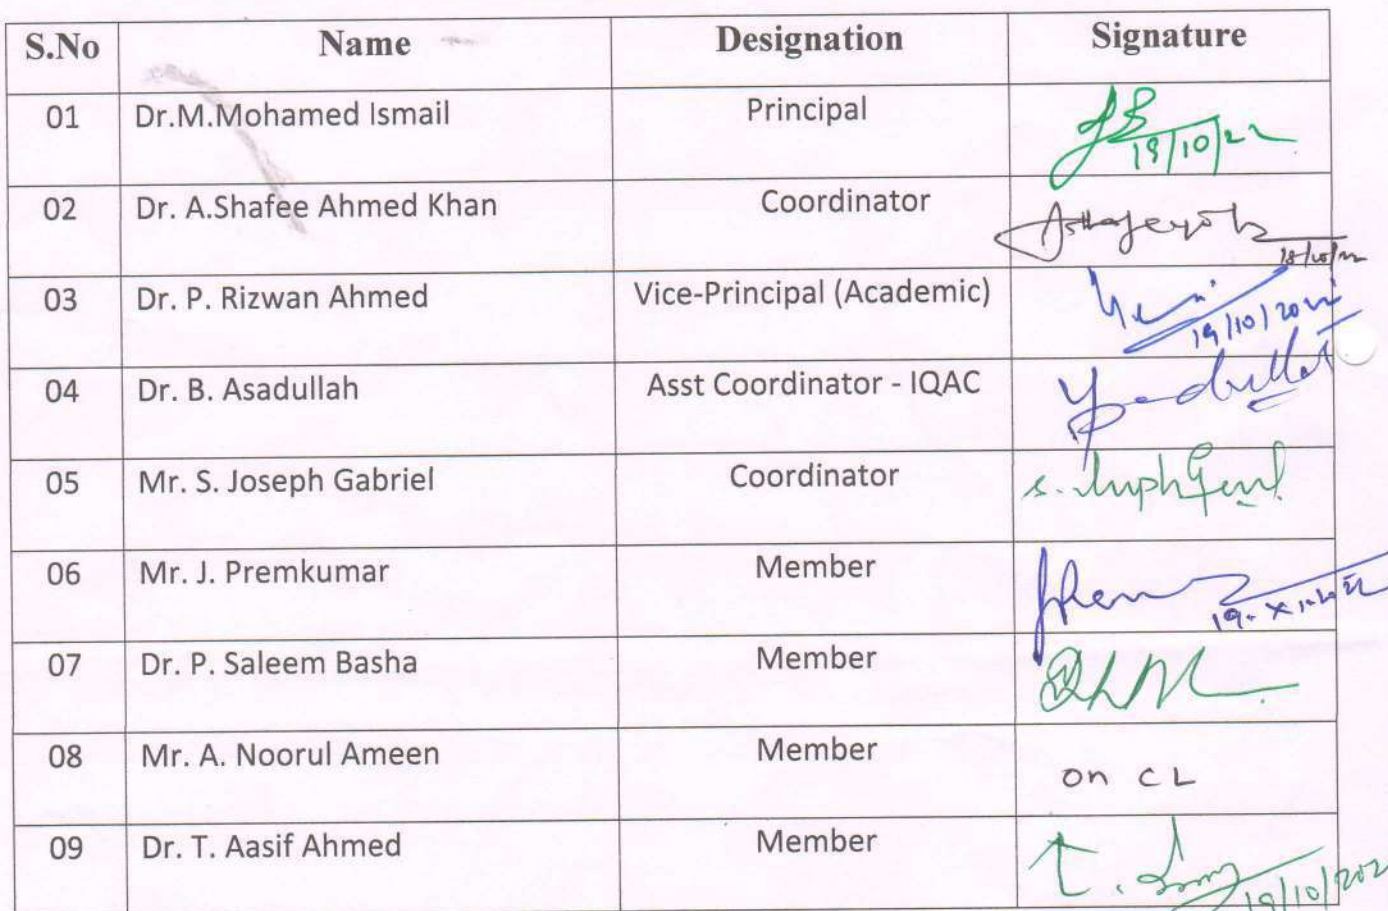 S.No Name Designation Signature
01 Dr.M.Mohamed Ismail Principal
19/10/22
02 Dr. A.Shafee Ahmed Khan Coordinator
03 Dr. P. Rizwan Ahmed Vice-Principal (Academic)
19/10/2022
04 Dr. B. Asadullah Asst Coordinator - IQAC
05 Mr. S. Joseph Gabriel Coordinator
06 Mr. J. Premkumar Member
07 Dr. P. Saleem Basha Member
08 Mr. A. Noorul Ameen Member on CL
09 Dr. T. Aasif Ahmed Member
19/10/202